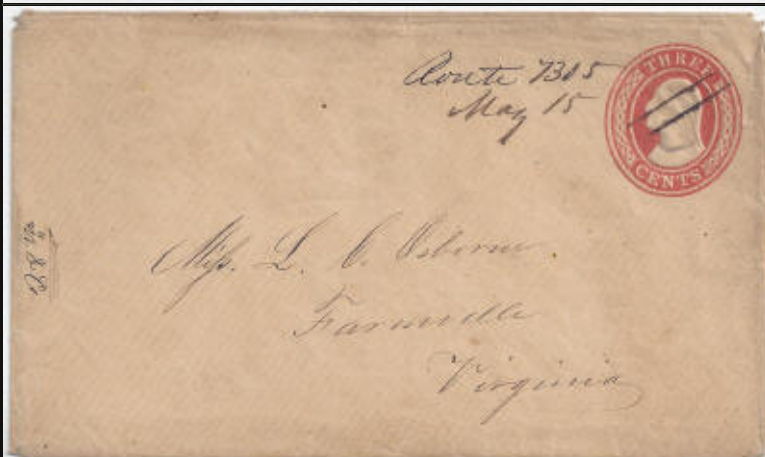 Route 7305
May 15
THREE
CENTS
Miss. L. C. Osborne.
Farmville
Virginia